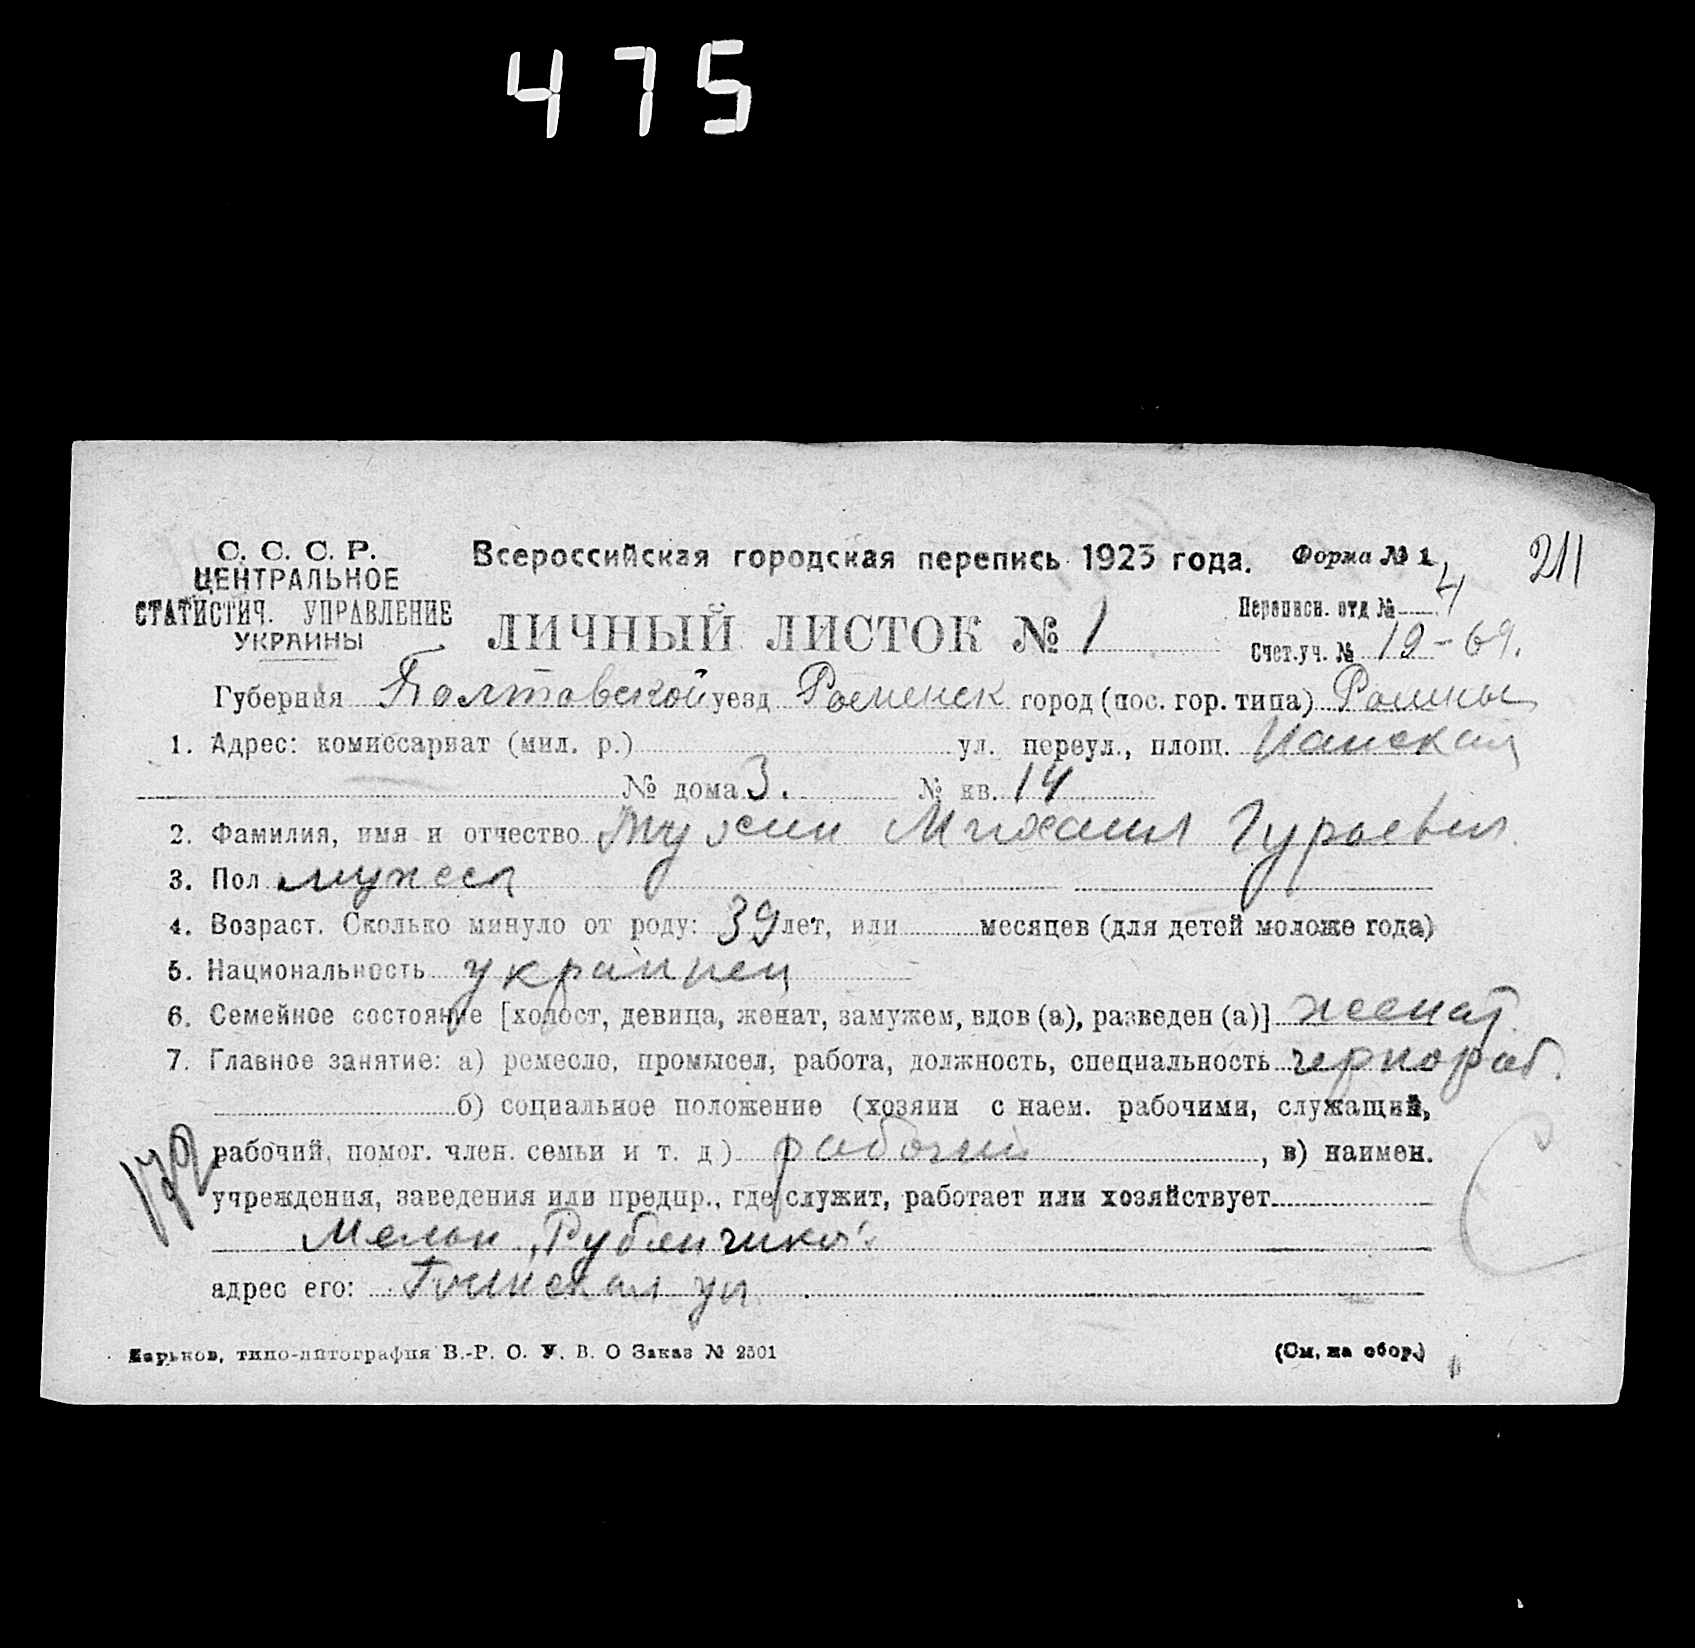 475
С. С. С. Р.
ЦЕНТРАЛЬНОЕ
СТАТИСТИЧ. УПРАВЛЕНИЕ
УКРАИНЫ
Всероссийская городская перепись 1923 года. Форма № 1
211
ЛИЧНЫЙ ЛИСТОК № 1
Переписн. отд № 4
Счет.уч. № 19-69.
Губерния Полтавской уезд Роменск город (пос. гор. типа) Ромны
1. Адрес: комиссариат (мил. р.) ул. переул., площ.
№ дома 3. № кв. 14
2. Фамилия, имя и отчество Михаил Гурьевич
3. Пол мужеск
4. Возраст. Сколько минуло от роду: 39 лет, или месяцев (для детей моложе года)
5. Национальность украинец
6. Семейное состояние [холост, девица, женат, замужем, вдов (а), разведен (а)] женат
7. Главное занятие: а) ремесло, промысел, работа, должность, специальность чернораб.
б) социальное положение (хозяин с наем. рабочими, служащий,
рабочий, помог. член. семьи и т. д) рабочий, в) наимен.
172
учреждения, заведения или предпр., где служит, работает или хозяйствует
адрес его: ул
Харьков, типо-литография В.-Р. О. У. В. О Заказ № 2501
(См. на обор.)